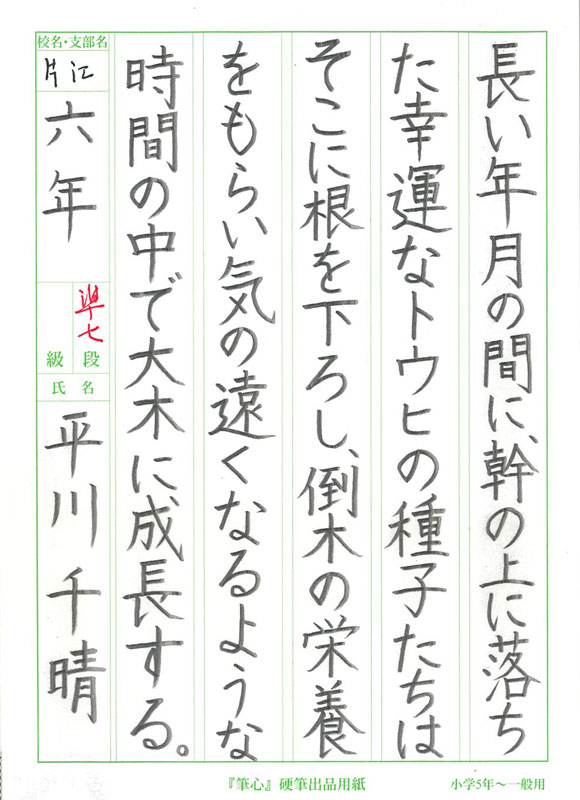 長い年月の間に、幹の上に落ち
た幸運なトウヒの種子たちは
そこに根を下ろし、倒木の栄養
をもらい気の遠くなるような
時間の中で大木に成長する。
校名・支部名
片江
六年
準七
級 段
氏名
平川千晴
『筆心』硬筆出品用紙
小学5年～一般用